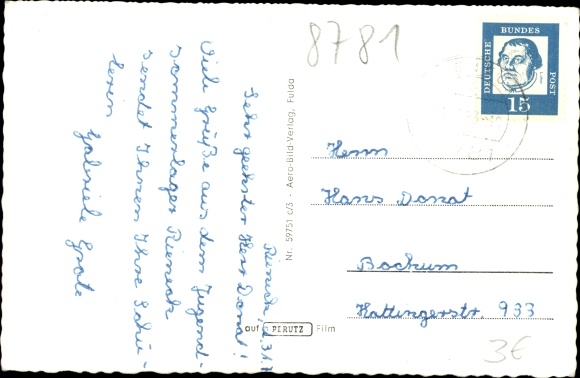 8781
DEUTSCHE
BUNDES
POST
15
Rieneck, d. 3.1.
Sehr geehrter Herr Donat!
Viele Grüße aus dem Jugend-
Sommerlager Rieneck
sendet Ihnen Ihre Schü-
lerin
Gabriele Grote
Nr. 59751 c/3 - Aero-Bild-Verlag, Fulda
auf PERUTZ Film
Herrn
Hans Donat
Bochum
Hattingerstr. 933
3€